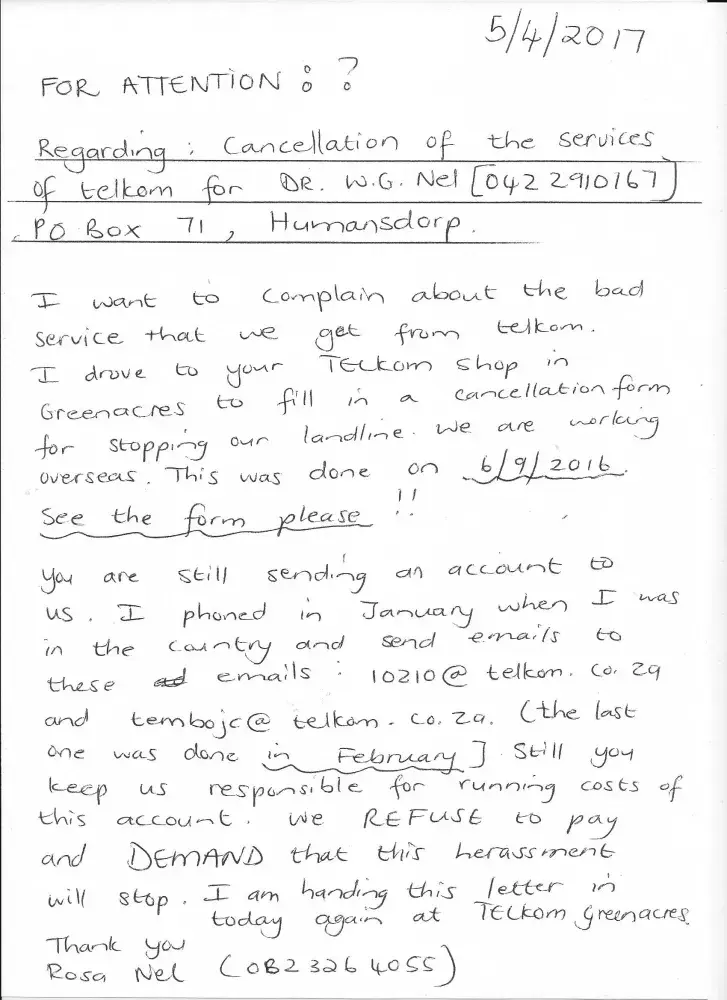 5/4/2017
FOR ATTENTION : ?
Regarding : Cancellation of the services
of telkom for DR. W.G. Nel [042 2910167]
PO Box 71, Humansdorp.
I want to complain about the bad
service that we get from telkom.
I drove to your TELkom shop in
Greenacres to fill in a cancellation form
for stopping our landline. We are working
overseas. This was done on 6/9/2016.
See the form please !!
You are still sending an account to
us. I phoned in January when I was
in the country and send emails to
these emails : 10210@telkom.co.za
and tembojc@telkom.co.za. (the last
one was done in February] Still you
keep us responsible for running costs of
this account. We REFUSE to pay
and DEMAND that this herassment
will stop. I am handing this letter in
today again at TELkom Greenacres.
Thank you
Rosa Nel (082 326 4055)